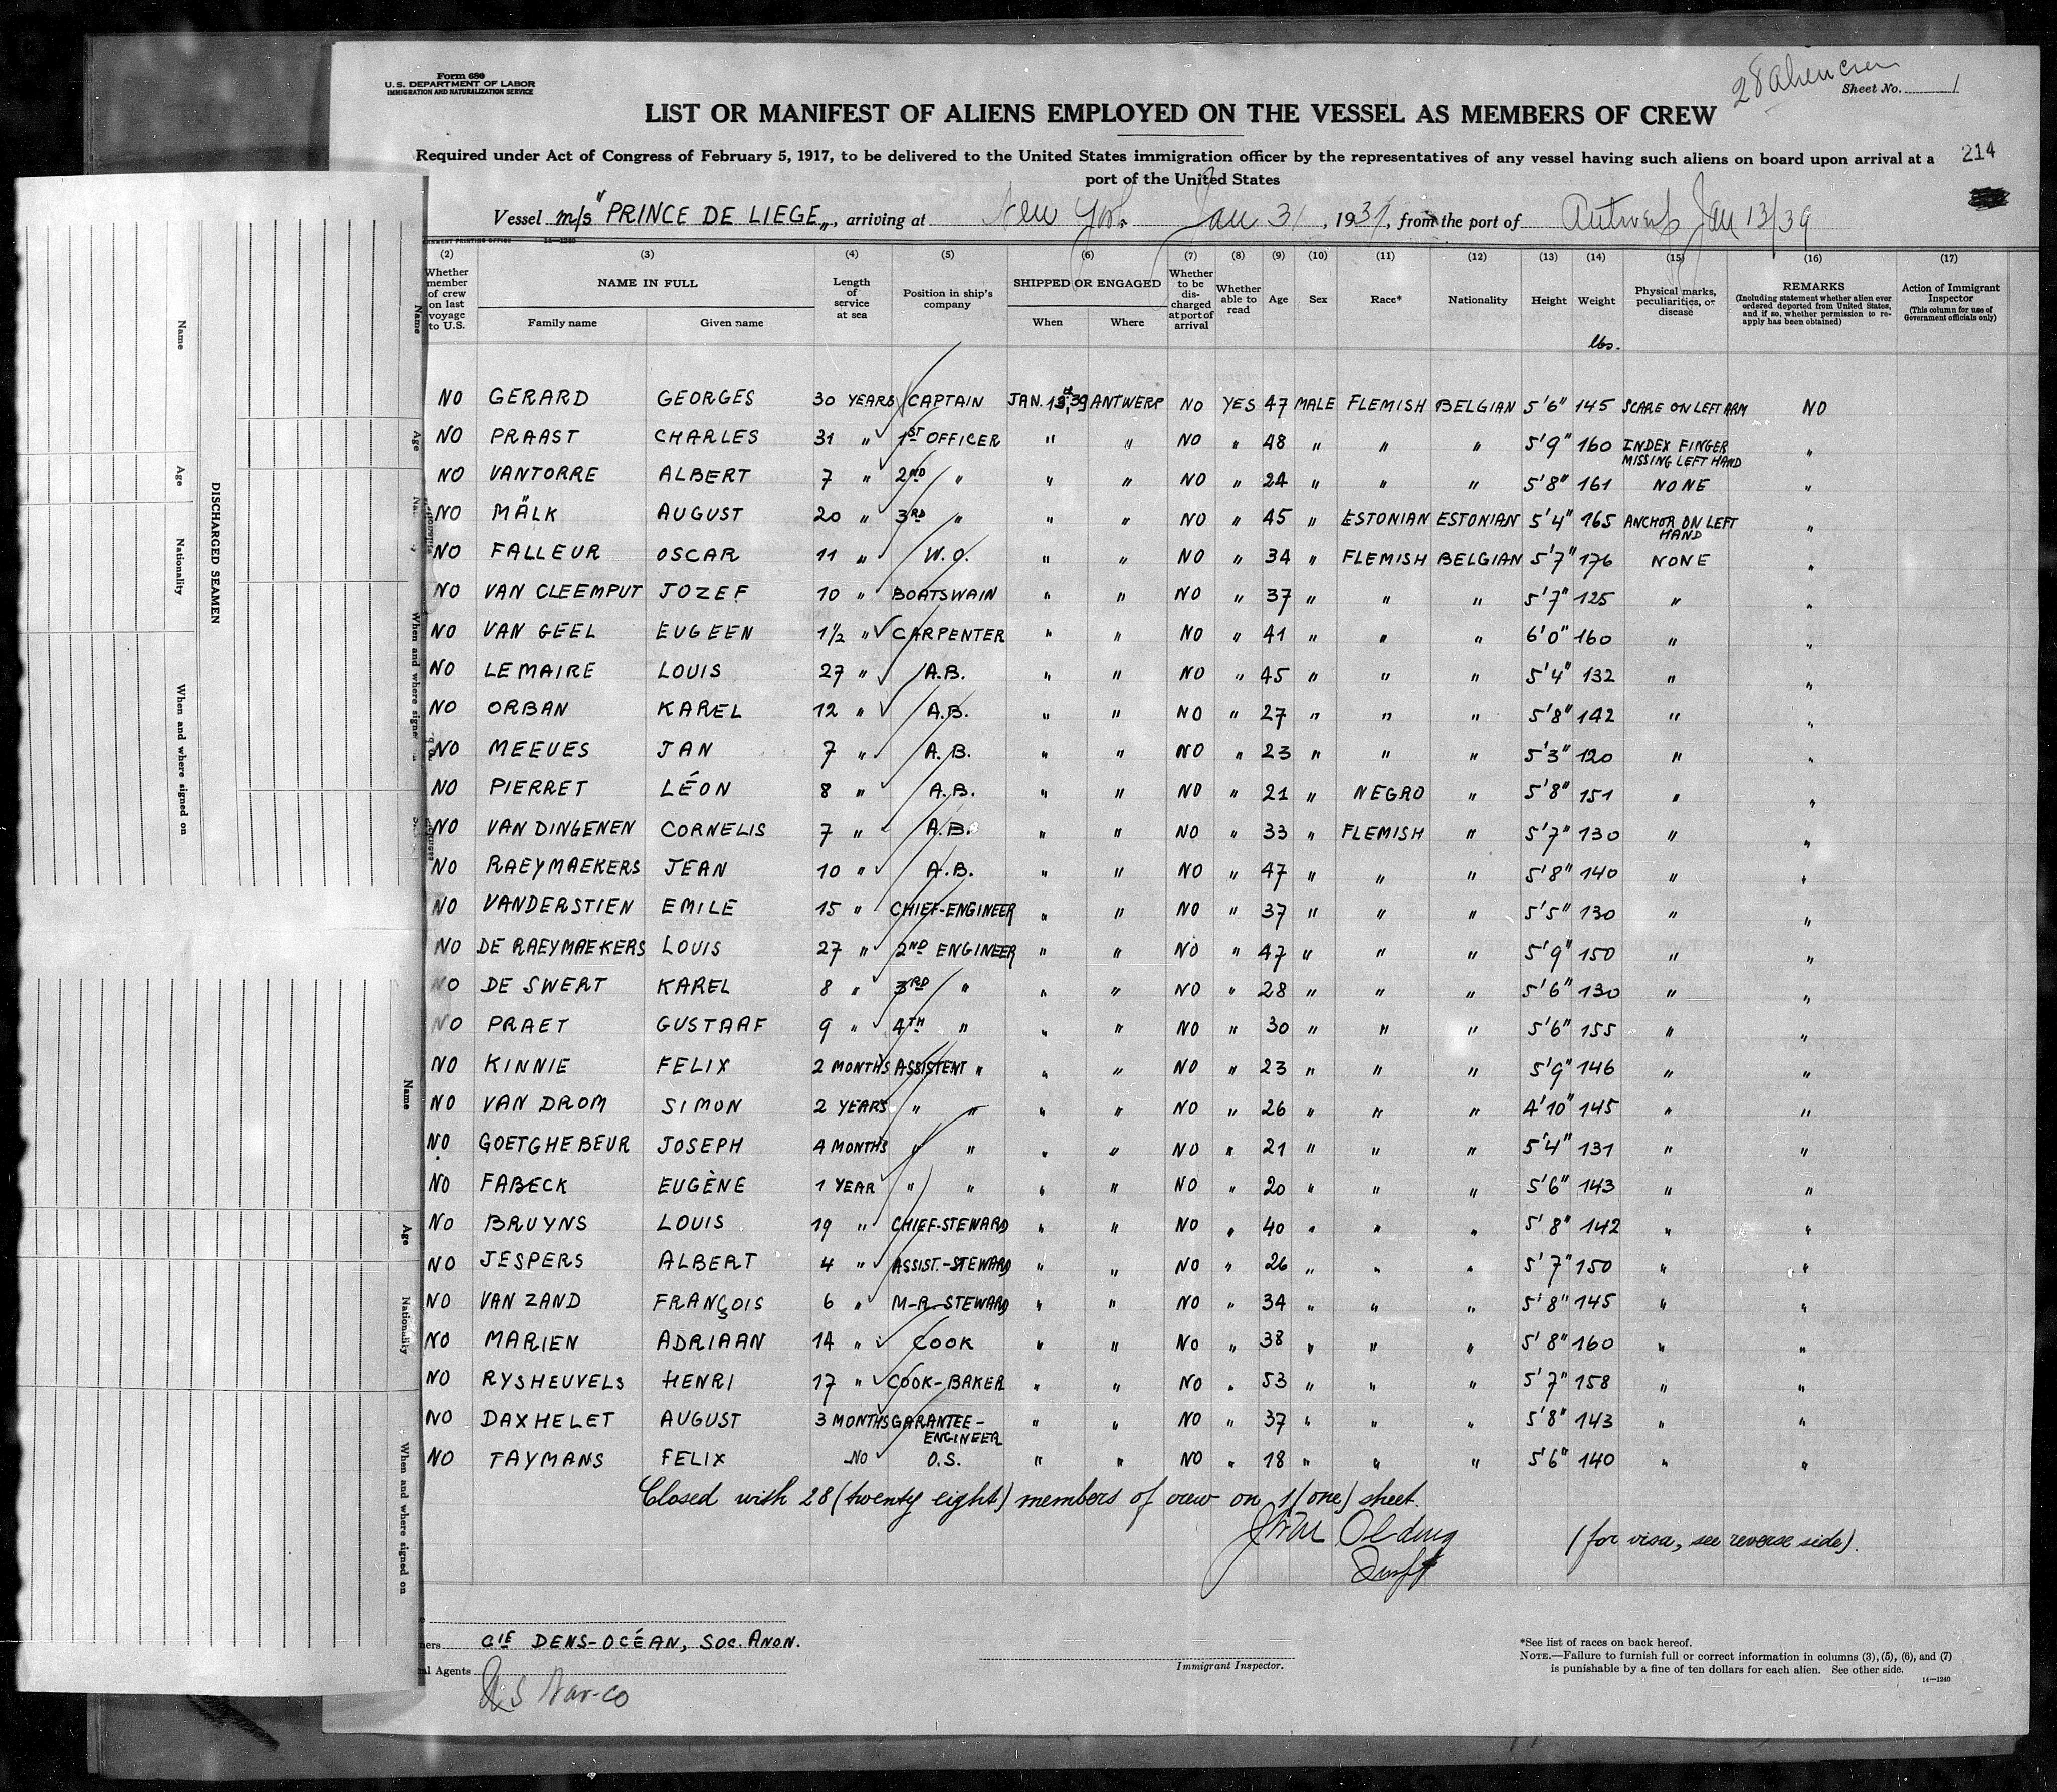 Form 680
U. S. DEPARTMENT OF LABOR
IMMIGRATION AND NATURALIZATION SERVICE
28 alien crew
Sheet No. 1
LIST OR MANIFEST OF ALIENS EMPLOYED ON THE VESSEL AS MEMBERS OF CREW
Required under Act of Congress of February 5, 1917, to be delivered to the United States immigration officer by the representatives of any vessel having such aliens on board upon arrival at a
port of the United States
214
Vessel m/s "PRINCE DE LIEGE„, arriving at New York Jan 31, 1939, from the port of Antwerp Jan 13/39
(2) Whether member of crew on last voyage to U.S.
(3) NAME IN FULL Family name Given name
(4) Length of service at sea
(5) Position in ship's company
(6) SHIPPED OR ENGAGED When Where
(7) Whether to be discharged at port of arrival
(8) Whether able to read
(9) Age
(10) Sex
(11) Race*
(12) Nationality
(13) Height
(14) Weight lbs.
(15) Physical marks, peculiarities, or disease
(16) REMARKS (Including statement whether alien ever ordered deported from United States, and if so, whether permission to reapply has been obtained)
(17) Action of Immigrant Inspector (This column for use of Government officials only)
NO GERARD GEORGES 30 YEARS CAPTAIN JAN. 13, 39 ANTWERP NO YES 47 MALE FLEMISH BELGIAN 5'6" 145 SCARE ON LEFT ARM NO
NO PRAAST CHARLES 31 " 1ST OFFICER " " NO " 48 " " " 5'9" 160 INDEX FINGER MISSING LEFT HAND "
NO VANTORRE ALBERT 7 " 2ND " " " NO " 24 " " " 5'8" 161 NONE "
NO MÄLK AUGUST 20 " 3RD " " " NO " 45 " ESTONIAN ESTONIAN 5'4" 165 ANCHOR ON LEFT HAND "
NO FALLEUR OSCAR 11 " W.O. " " NO " 34 " FLEMISH BELGIAN 5'7" 176 NONE "
NO VAN CLEEMPUT JOZEF 10 " BOATSWAIN " " NO " 37 " " " 5'7" 125 " "
NO VAN GEEL EUGEEN 1½ " CARPENTER " " NO " 41 " " " 6'0" 160 " "
NO LEMAIRE LOUIS 27 " A.B. " " NO " 45 " " " 5'4" 132 " "
NO ORBAN KAREL 12 " A.B. " " NO " 27 " " " 5'8" 142 " "
NO MEEUES JAN 7 " A.B. " " NO " 23 " " " 5'3" 120 " "
NO PIERRET LÉON 8 " A.B. " " NO " 21 " NEGRO " 5'8" 151 " "
NO VAN DINGENEN CORNELIS 7 " A.B. " " NO " 33 " FLEMISH " 5'7" 130 " "
NO RAEYMAEKERS JEAN 10 " A.B. " " NO " 47 " " " 5'8" 140 " "
NO VANDERSTIEN EMILE 15 " CHIEF-ENGINEER " " NO " 37 " " " 5'5" 130 " "
NO DE RAEYMAEKERS LOUIS 27 " 2ND ENGINEER " " NO " 47 " " " 5'9" 150 " "
NO DE SWERT KAREL 8 " 3RD " " " NO " 28 " " " 5'6" 130 " "
NO PRAET GUSTAAF 9 " 4TH " " " NO " 30 " " " 5'6" 155 " "
NO KINNIE FELIX 2 MONTHS ASSISTENT " " " NO " 23 " " " 5'9" 146 " "
NO VAN DROM SIMON 2 YEARS " " " " NO " 26 " " " 4'10" 145 " "
NO GOETGHEBEUR JOSEPH 4 MONTHS " " " " NO " 21 " " " 5'4" 131 " "
NO FABECK EUGÈNE 1 YEAR " " " " NO " 20 " " " 5'6" 143 " "
NO BRUYNS LOUIS 19 " CHIEF-STEWARD " " NO " 40 " " " 5'8" 142 " "
NO JESPERS ALBERT 4 " ASSIST.-STEWARD " " NO " 26 " " " 5'7" 150 " "
NO VAN ZAND FRANÇOIS 6 " M-R-STEWARD " " NO " 34 " " " 5'8" 145 " "
NO MARIEN ADRIAAN 14 " COOK " " NO " 38 " " " 5'8" 160 " "
NO RYSHEUVELS HENRI 17 " COOK-BAKER " " NO " 53 " " " 5'7" 158 " "
NO DAXHELET AUGUST 3 MONTHS GARANTEE-ENGINEER " " NO " 37 " " " 5'8" 143 " "
NO TAYMANS FELIX NO O.S. " " NO " 18 " " " 5'6" 140 " "
Closed with 28 (twenty eight) members of crew on 1 (one) sheet.
(for visa, see reverse side).
CIE DENS-OCÉAN, SOC. ANON.
al Agents
Immigrant Inspector.
*See list of races on back hereof.
NOTE.—Failure to furnish full or correct information in columns (3), (5), (6), and (7)
is punishable by a fine of ten dollars for each alien. See other side.
14—1240
DISCHARGED SEAMEN
Name
Age
Nationality
When and where signed on
Name
Age
Nationality
When and where signed on